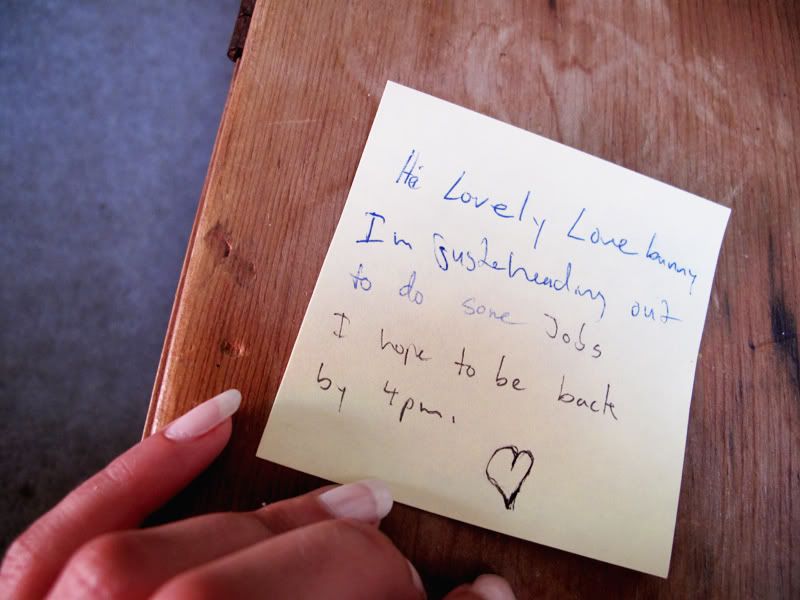 Hi Lovely Lovebunny
I'm just heading out
to do some Jobs
I hope to be back
by 4pm.